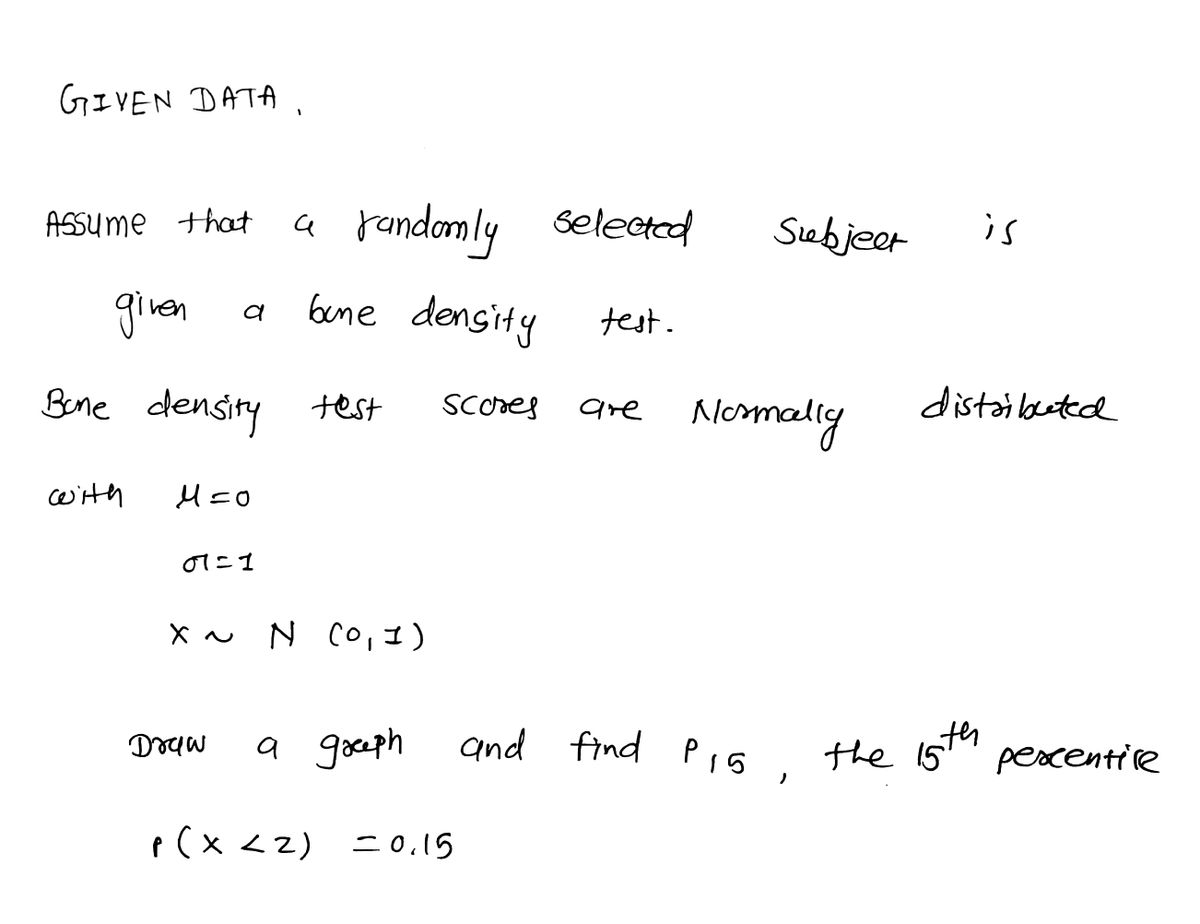 GIVEN DATA,
Assume that a randomly selected Subject is
given a bone density test.
Bone density test scores are Normally distributed
with μ=0
σ=1
X ~ N (0,1)
Draw a graph and find P15, the 15th percentile
P(X <z) =0.15